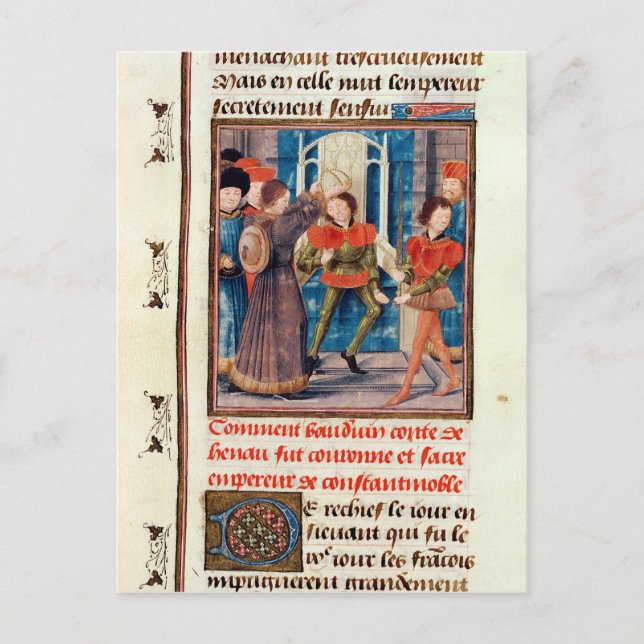 menachant trescrueusement
Mais en celle nuit lempereur
secretement senfui
Comment bauduin conte de
henau fut couronne et sacre
empereur de constantinoble
De rechief le iour en
sieuant qui fu le
iour les francois
impugnerent grandement